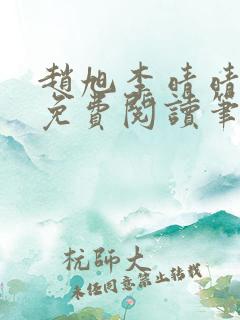 趙旭李晴晴
免費閱讀筆
杭師大
未經同意禁止轉載